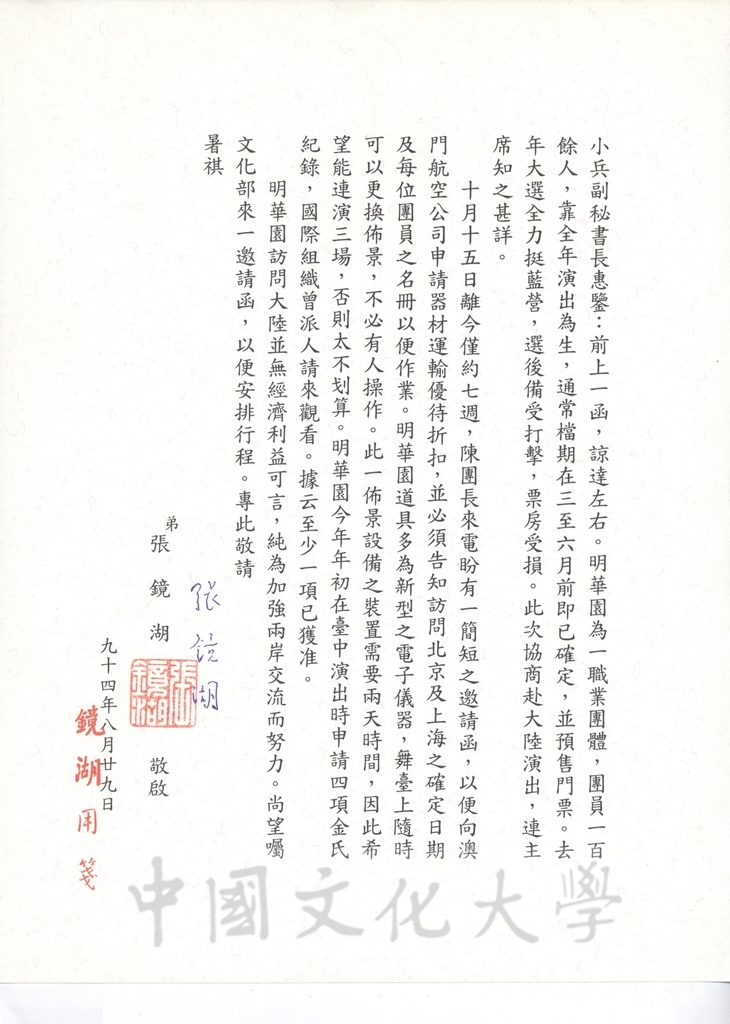 小兵副秘書長惠鑒：前上一函，諒達左右。明華園為一職業團體，團員一百
餘人，靠全年演出為生，通常檔期在三至六月前即已確定，並預售門票。去
年大選全力挺藍營，選後備受打擊，票房受損。此次協商赴大陸演出，連主
席知之甚詳。
十月十五日離今僅約七週，陳團長來電盼有一簡短之邀請函，以便向澳
門航空公司申請器材運輸優待折扣，並必須告知訪問北京及上海之確定日期
及每位團員之名冊以便作業。明華園道具多為新型之電子儀器，舞臺上隨時
可以更換佈景，不必有人操作。此一佈景設備之裝置需要兩天時間，因此希
望能連演三場，否則太不划算。明華園今年年初在臺中演出時申請四項金氏
紀錄，國際組織曾派人請來觀看。據云至少一項已獲准。
明華園訪問大陸並無經濟利益可言，純為加強兩岸交流而努力。尚望囑
文化部來一邀請函，以便安排行程。專此敬請
暑祺
張鏡湖
弟張鏡湖 敬啟
張鏡湖印
九十四年八月廿九日
鏡湖用箋
中國文化大學